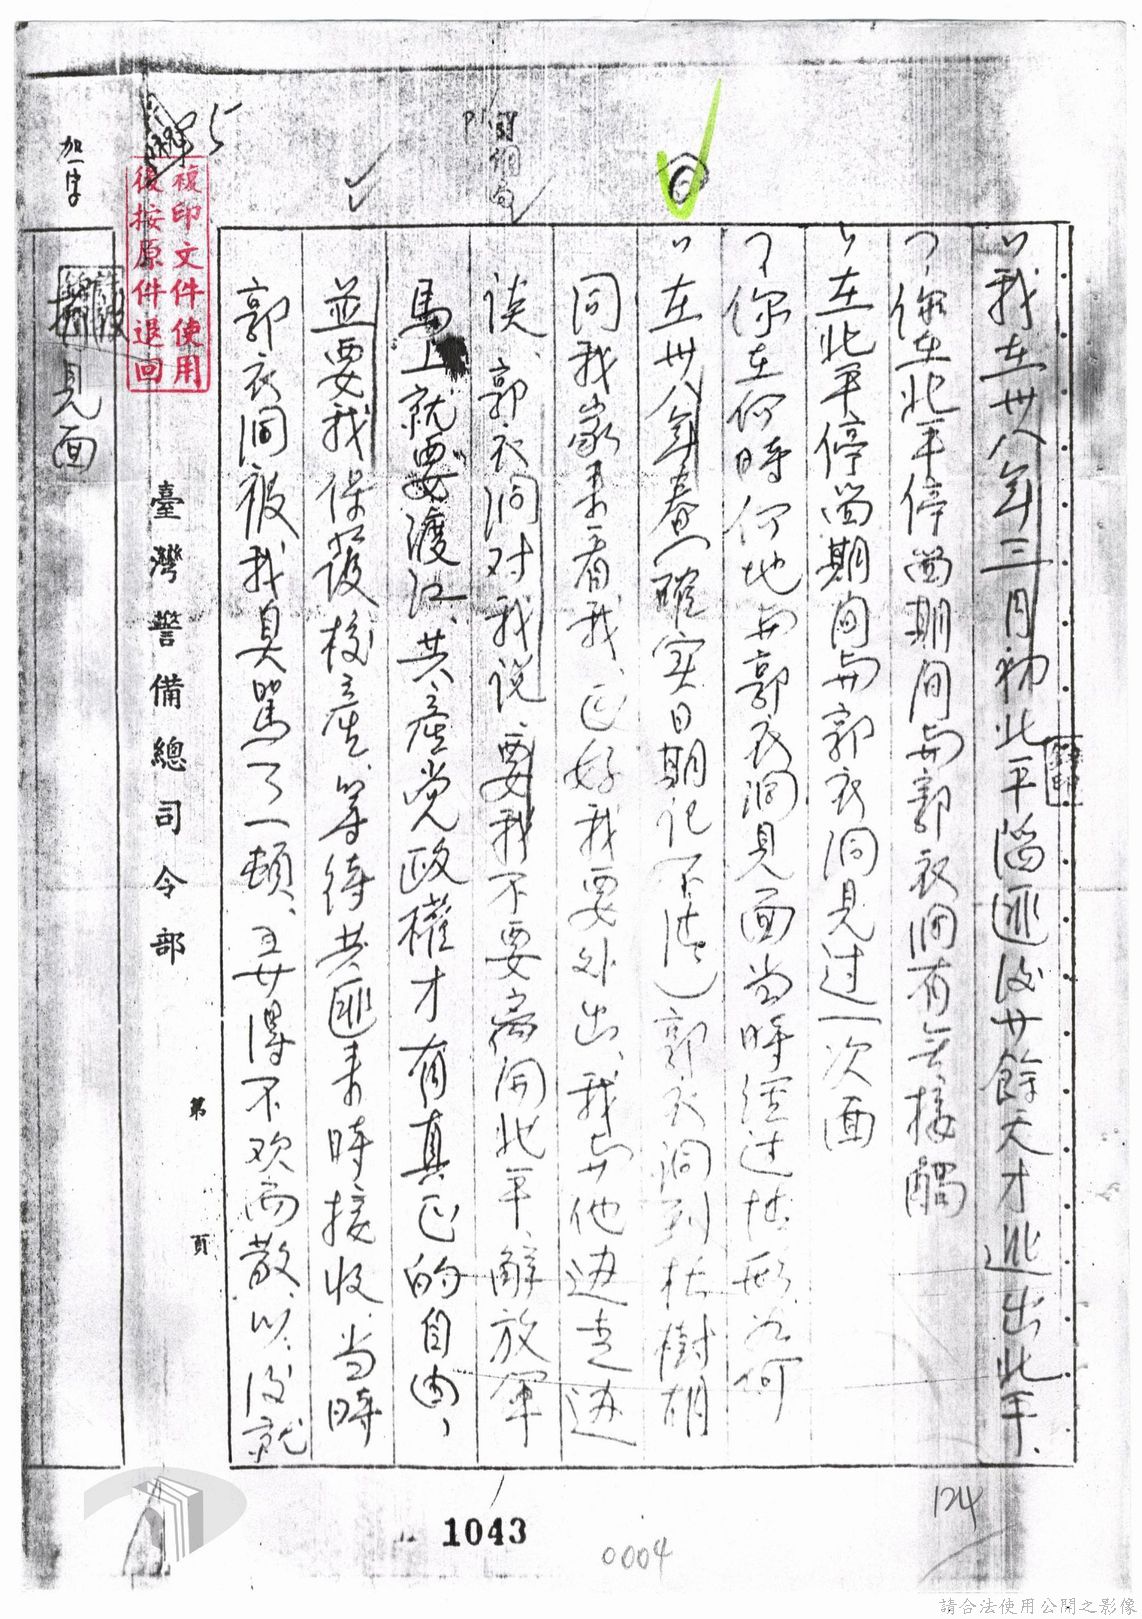 〃我在卅八年三月初北平淪匪後廿餘天才逃出北平、
？你在北平停留期间与郭衣洞有無接觸
〃在北平停留期间与郭衣洞見过一次面
？你在何時何地与郭衣洞見面当時經过情形为何
〃在卅八年春(確实日期记不清)郭衣洞到杜樹胡
同我家来看我、正好我要外出、我与他边走边
谈、郭衣洞对我说、要我不要离開北平、解放軍
馬上就要渡江、共產党政權才有真正的自由、
並要我保護校產、等待共匪来時接收、当時
郭衣洞被我臭罵了一頓、弄得不欢而散、以後就
見面
臺灣警備總司令部
第 頁
加一字
複印文件使用
後按原件退回
1043
0004
124
請合法使用公開之影像